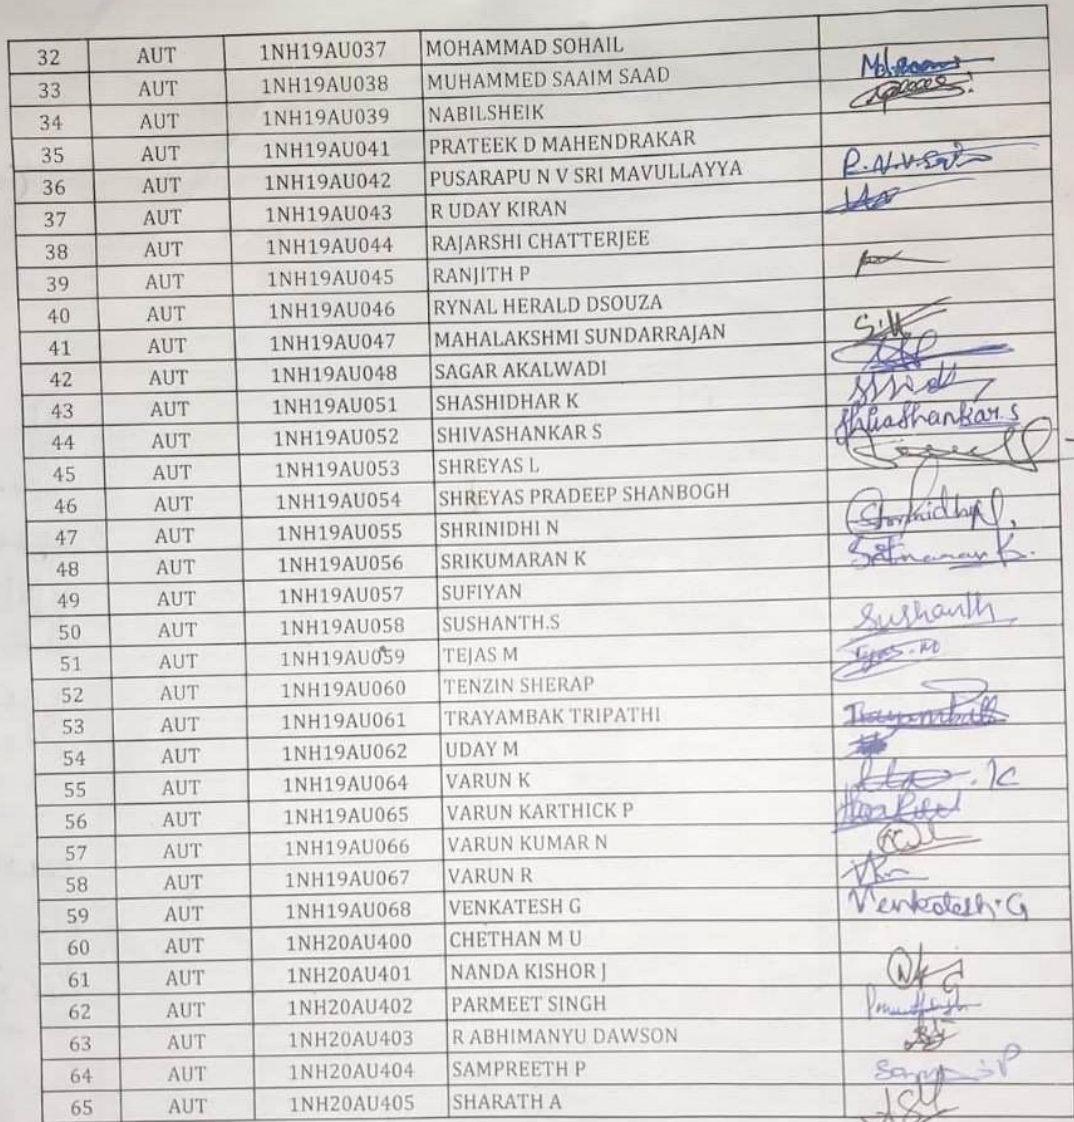 32 AUT 1NH19AU037 MOHAMMAD SOHAIL
33 AUT 1NH19AU038 MUHAMMED SAAIM SAAD
34 AUT 1NH19AU039 NABILSHEIK
35 AUT 1NH19AU041 PRATEEK D MAHENDRAKAR
36 AUT 1NH19AU042 PUSARAPU N V SRI MAVULLAYYA
37 AUT 1NH19AU043 R UDAY KIRAN
38 AUT 1NH19AU044 RAJARSHI CHATTERJEE
39 AUT 1NH19AU045 RANJITH P
40 AUT 1NH19AU046 RYNAL HERALD DSOUZA
41 AUT 1NH19AU047 MAHALAKSHMI SUNDARRAJAN
42 AUT 1NH19AU048 SAGAR AKALWADI
43 AUT 1NH19AU051 SHASHIDHAR K
44 AUT 1NH19AU052 SHIVASHANKAR S Shivashankar.S
45 AUT 1NH19AU053 SHREYAS L
46 AUT 1NH19AU054 SHREYAS PRADEEP SHANBOGH
47 AUT 1NH19AU055 SHRINIDHI N
48 AUT 1NH19AU056 SRIKUMARAN K
49 AUT 1NH19AU057 SUFIYAN
50 AUT 1NH19AU058 SUSHANTH.S Sushanth
51 AUT 1NH19AU059 TEJAS M Tejas.M
52 AUT 1NH19AU060 TENZIN SHERAP
53 AUT 1NH19AU061 TRAYAMBAK TRIPATHI
54 AUT 1NH19AU062 UDAY M
55 AUT 1NH19AU064 VARUN K
56 AUT 1NH19AU065 VARUN KARTHICK P
57 AUT 1NH19AU066 VARUN KUMAR N
58 AUT 1NH19AU067 VARUN R
59 AUT 1NH19AU068 VENKATESH G Venkatesh.G
60 AUT 1NH20AU400 CHETHAN M U
61 AUT 1NH20AU401 NANDA KISHOR J
62 AUT 1NH20AU402 PARMEET SINGH
63 AUT 1NH20AU403 R ABHIMANYU DAWSON
64 AUT 1NH20AU404 SAMPREETH P
65 AUT 1NH20AU405 SHARATH A